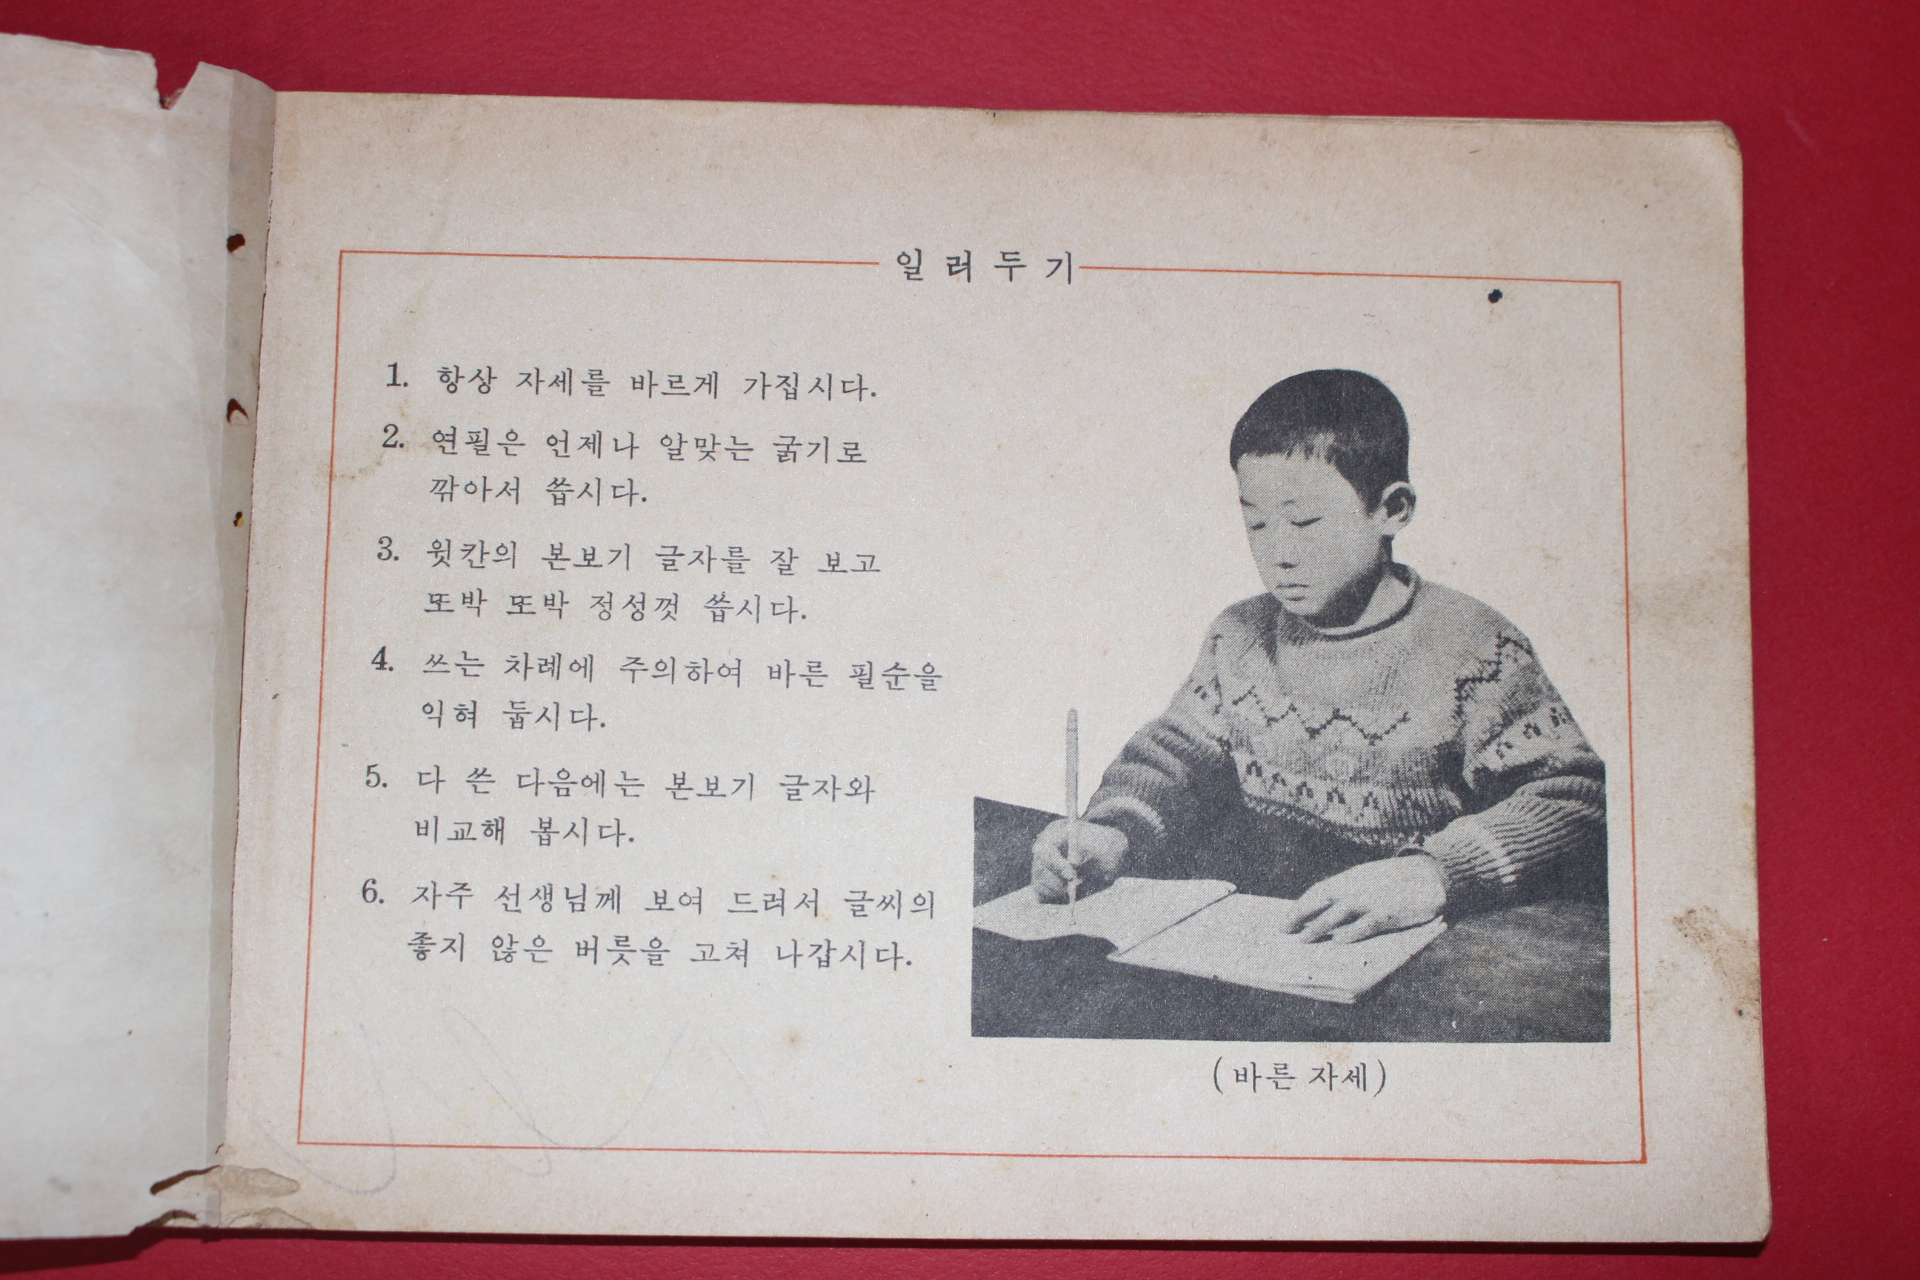 일러두기
1. 항상 자세를 바르게 가집시다.
2. 연필은 언제나 알맞는 굵기로
깎아서 씁시다.
3. 윗칸의 본보기 글자를 잘 보고
또박 또박 정성껏 씁시다.
4. 쓰는 차례에 주의하여 바른 필순을
익혀 둡시다.
5. 다 쓴 다음에는 본보기 글자와
비교해 봅시다.
6. 자주 선생님께 보여 드려서 글씨의
좋지 않은 버릇을 고쳐 나갑시다.
(바른 자세)